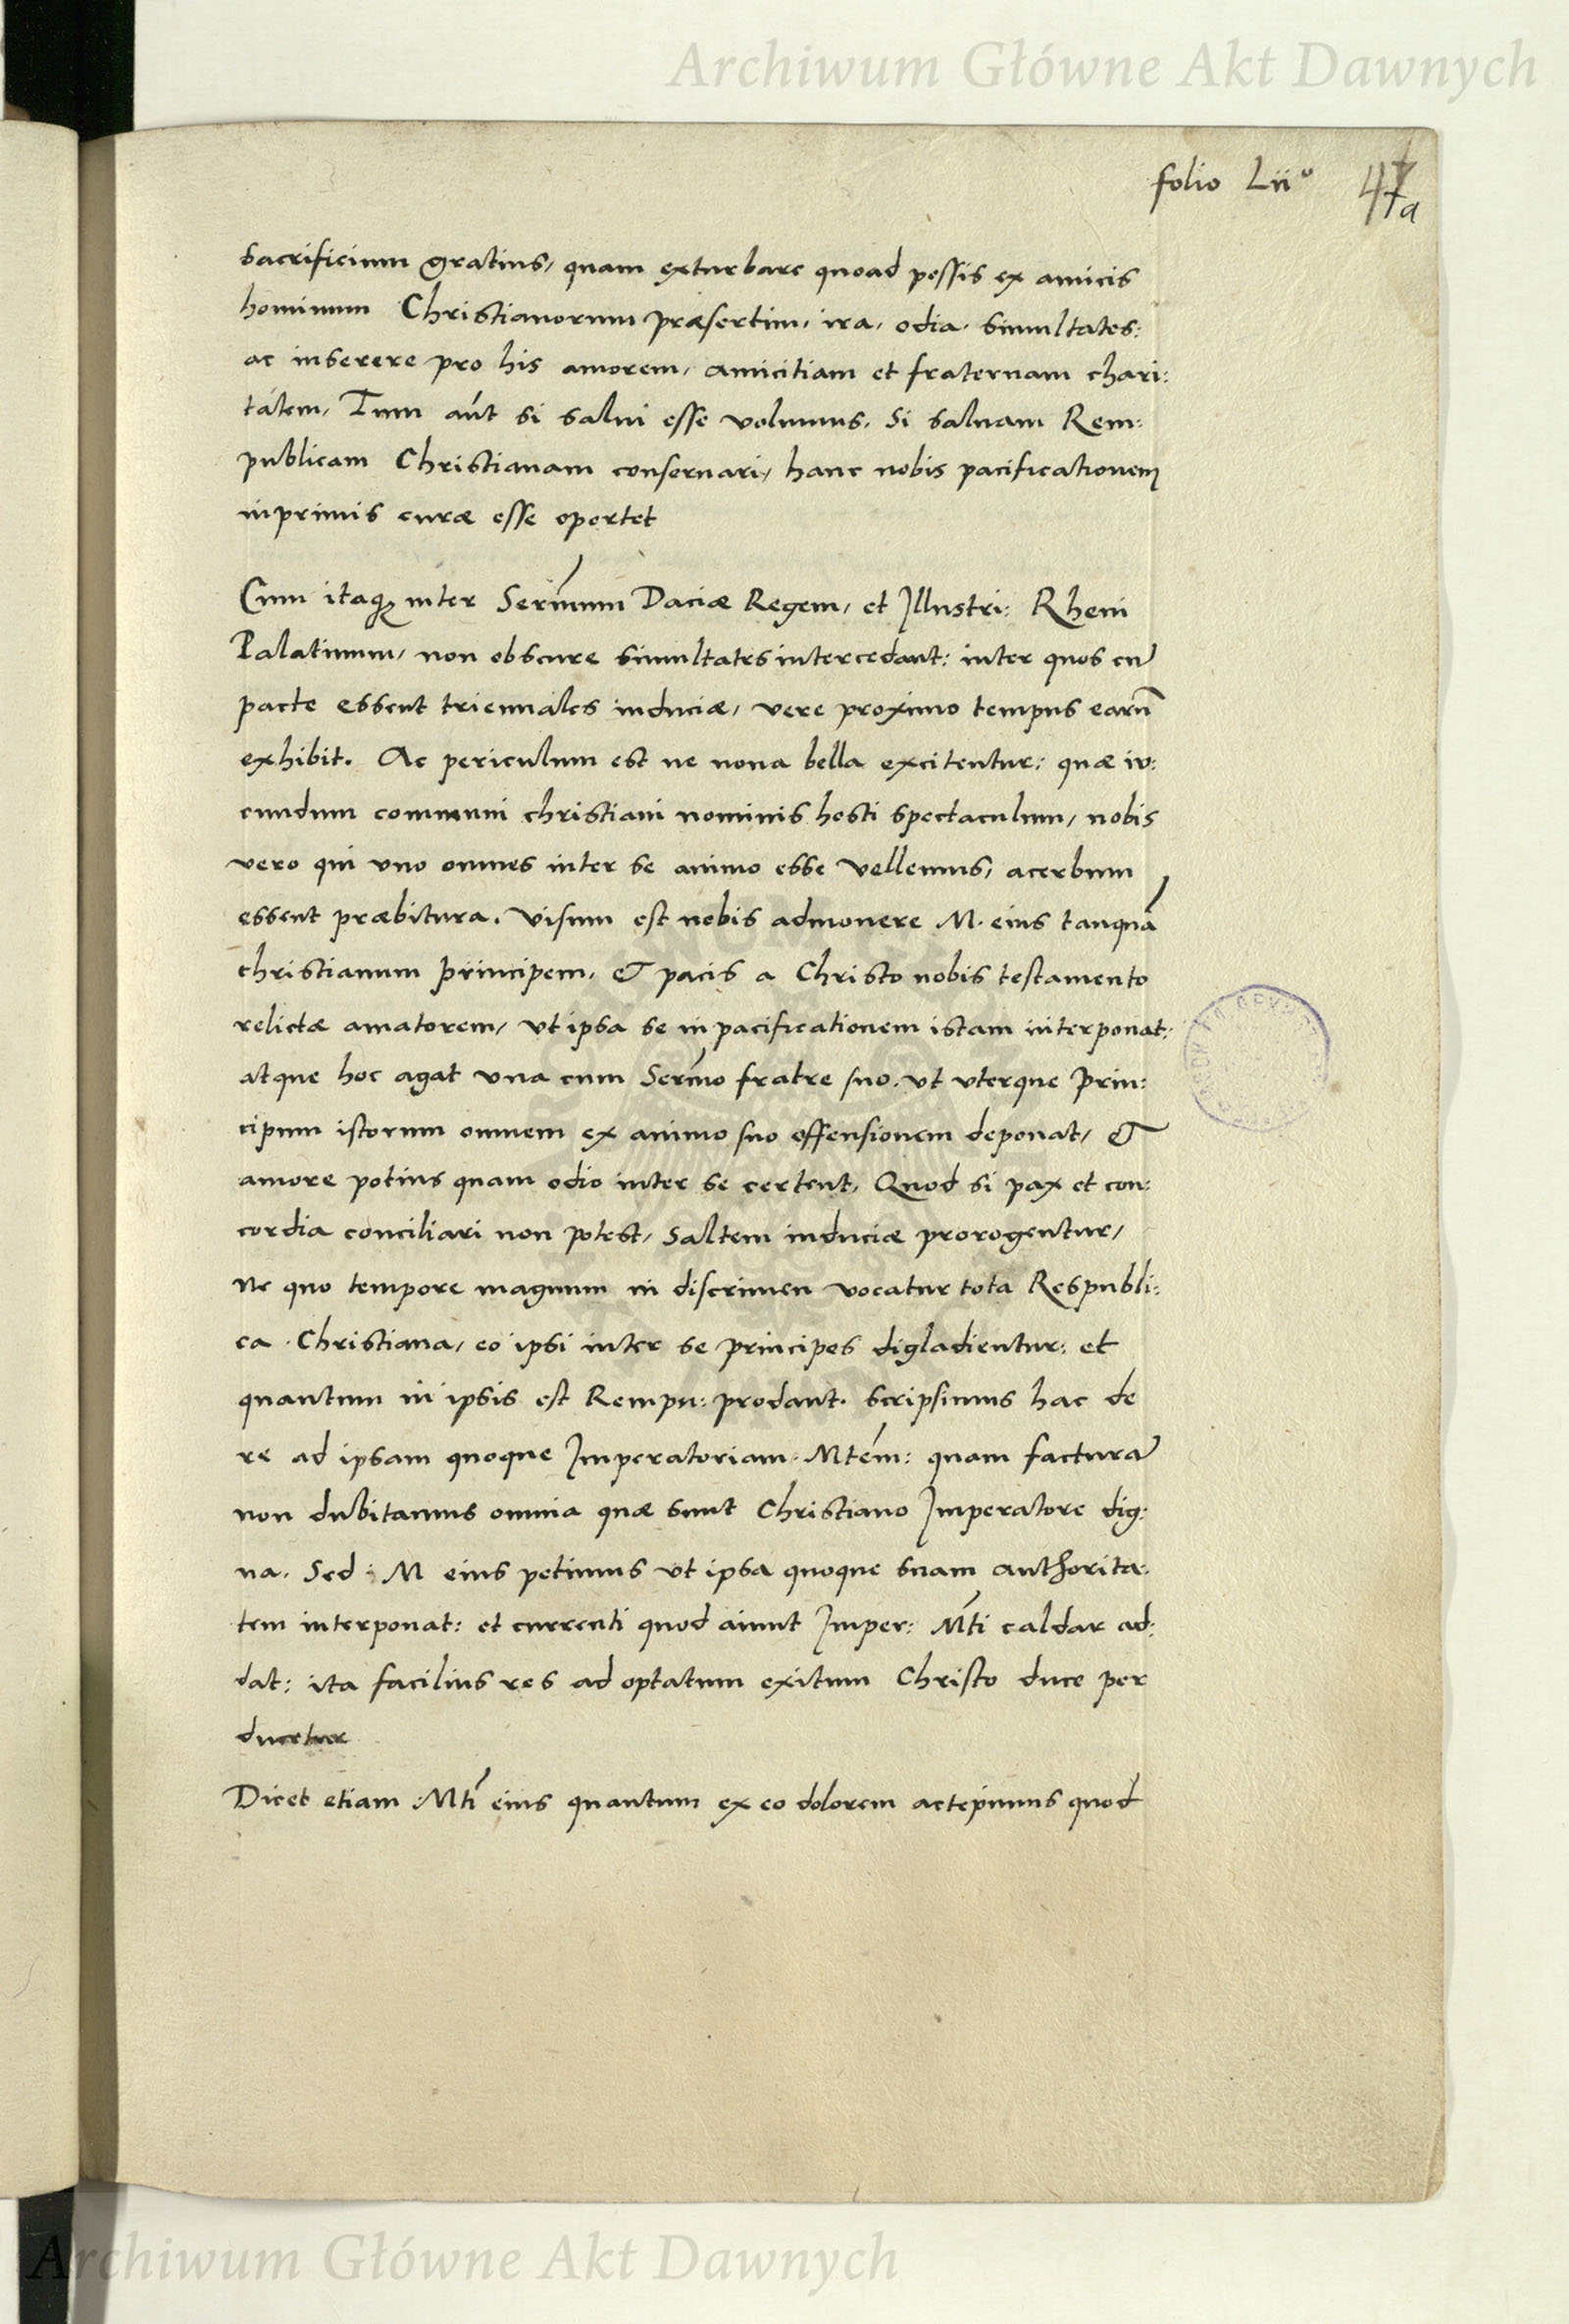 Archiwum Główne Akt Dawnych
folio Lii°
47a
sacrificium gratius, quam exturbare quoad possis ex amicis
hominum Christianorum præsertim, ira, odia, simultates:
ac inserere pro his amorem, amicitiam et fraternam chari:
tátem, Tum aút si salui esse volumus, Si saluam Rem:
publicam Christianam conseruari, hanc nobis pacificationem
inprimis curæ esse oportet
Cum itaqȝ inter Serm̄um Daciæ Regem, et Illustri: Rheni
Palatinum, non obscure simultates intercedant: inter quos cū
pacte essent triennales induciæ, vere proximo tempus earū
exhibit. Ac periculum est ne noua bella excitentur: quæ iu:
cundum communi christiani nominis hosti spectaculum, nobis
vero qui vno omnes inter se animo esse vellemus, acerbum
essent præbitura. Visum est nobis admonere M. eius tanquā
christianum principem, & pacis a Christo nobis testamento
relictæ amatorem, vt ipsa se in pacificationem istam interponat:
atque hoc agat vna cum Serm̄o fratre suo. vt vterque prin:
cipum istorum omnem ex animo suo offensionem deponat, &
amore potius quam odio inter se certent, Quod si pax et con:
cordia conciliari non potest, Saltem induciæ prorogentur,
Ne quo tempore magnum in discrimen vocatur tota Respubli:
ca Christiana, eo ipsi inter se principes digladientur: et
quantum in ipsis est Rempu: prodant. Scripsimus hac de
re ad ipsam quoque Imperatoriam Mtém: quam facturā
non dubitamus omnia quæ sunt Christiano Imperatore dig:
na. Sed M eius petimus vt ipsa quoque suam authorita:
tem interponat: et currenti quod aiunt Imper: M̄ti caldar ad:
dat: ita facilius res ad optatum exitum Christo duce per
ducetur
Dicet etiam M̄ti eius quantum ex eo dolorem accepimus quod
Archiwum Główne Akt Dawnych